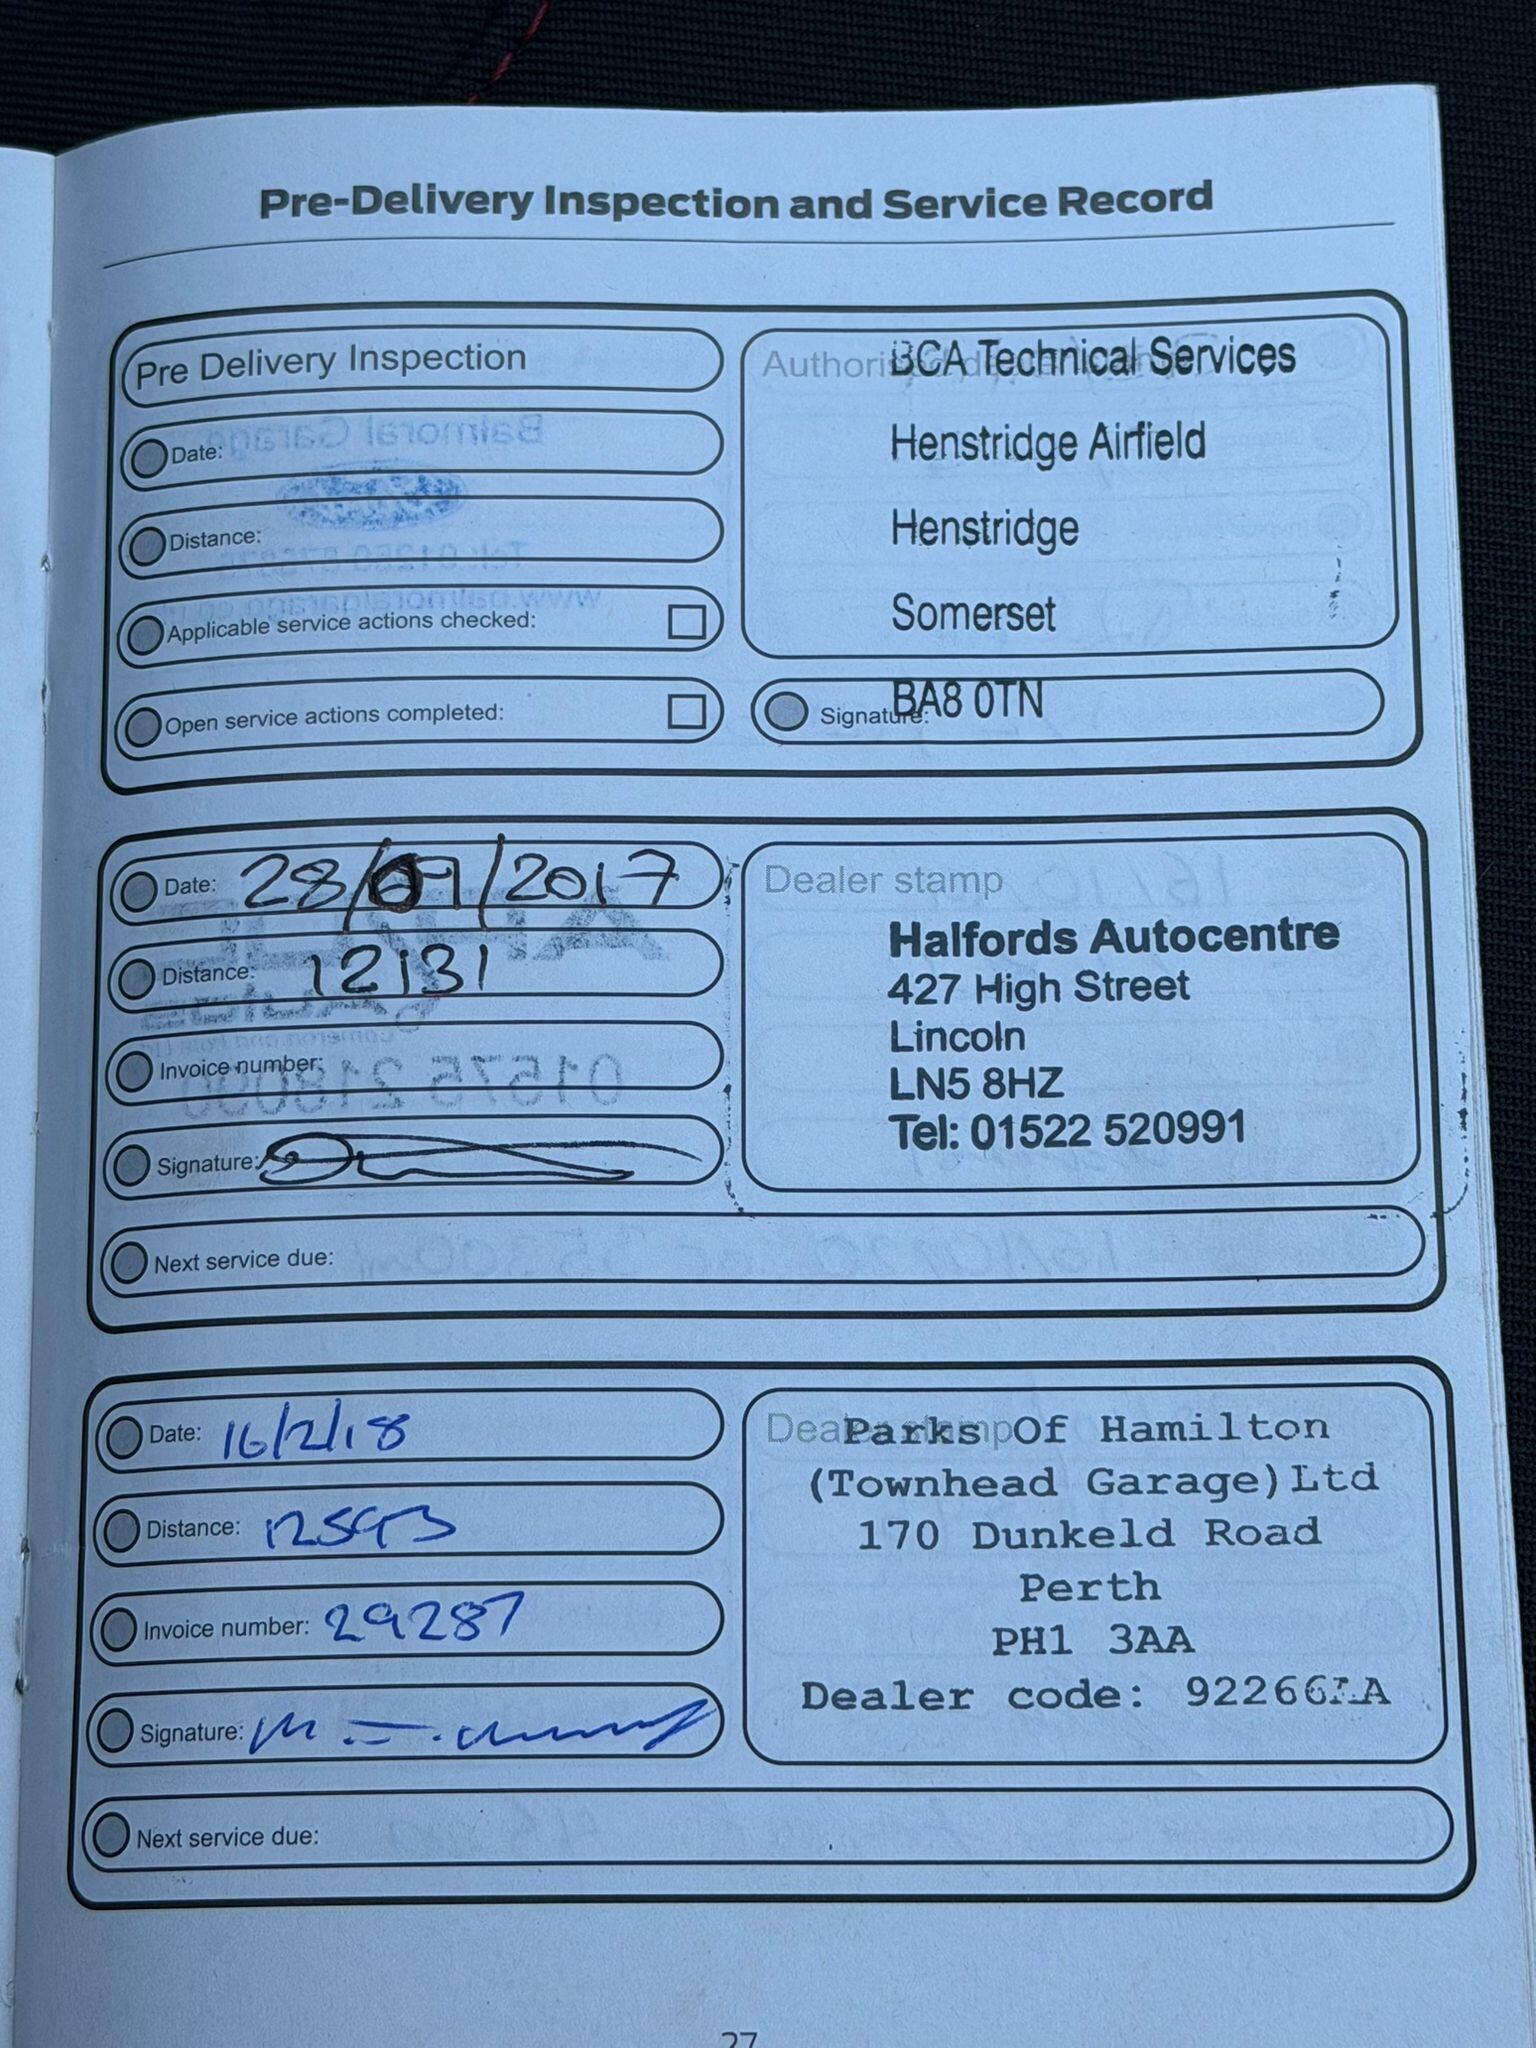 Pre-Delivery Inspection and Service Record
Pre Delivery Inspection
Date:
Distance:
Applicable service actions checked:
Open service actions completed:
BCA Technical Services
Henstridge Airfield
Henstridge
Somerset
BA8 0TN
Signature:
Date: 28/09/2017
Distance: 12131
Invoice number:
Signature:
Next service due:
Dealer stamp
Halfords Autocentre
427 High Street
Lincoln
LN5 8HZ
Tel: 01522 520991
Date: 16/2/18
Distance: 12593
Invoice number: 29287
Signature:
Next service due:
Dealer stamp
Parks Of Hamilton
(Townhead Garage) Ltd
170 Dunkeld Road
Perth
PH1 3AA
Dealer code: 92266AA
27